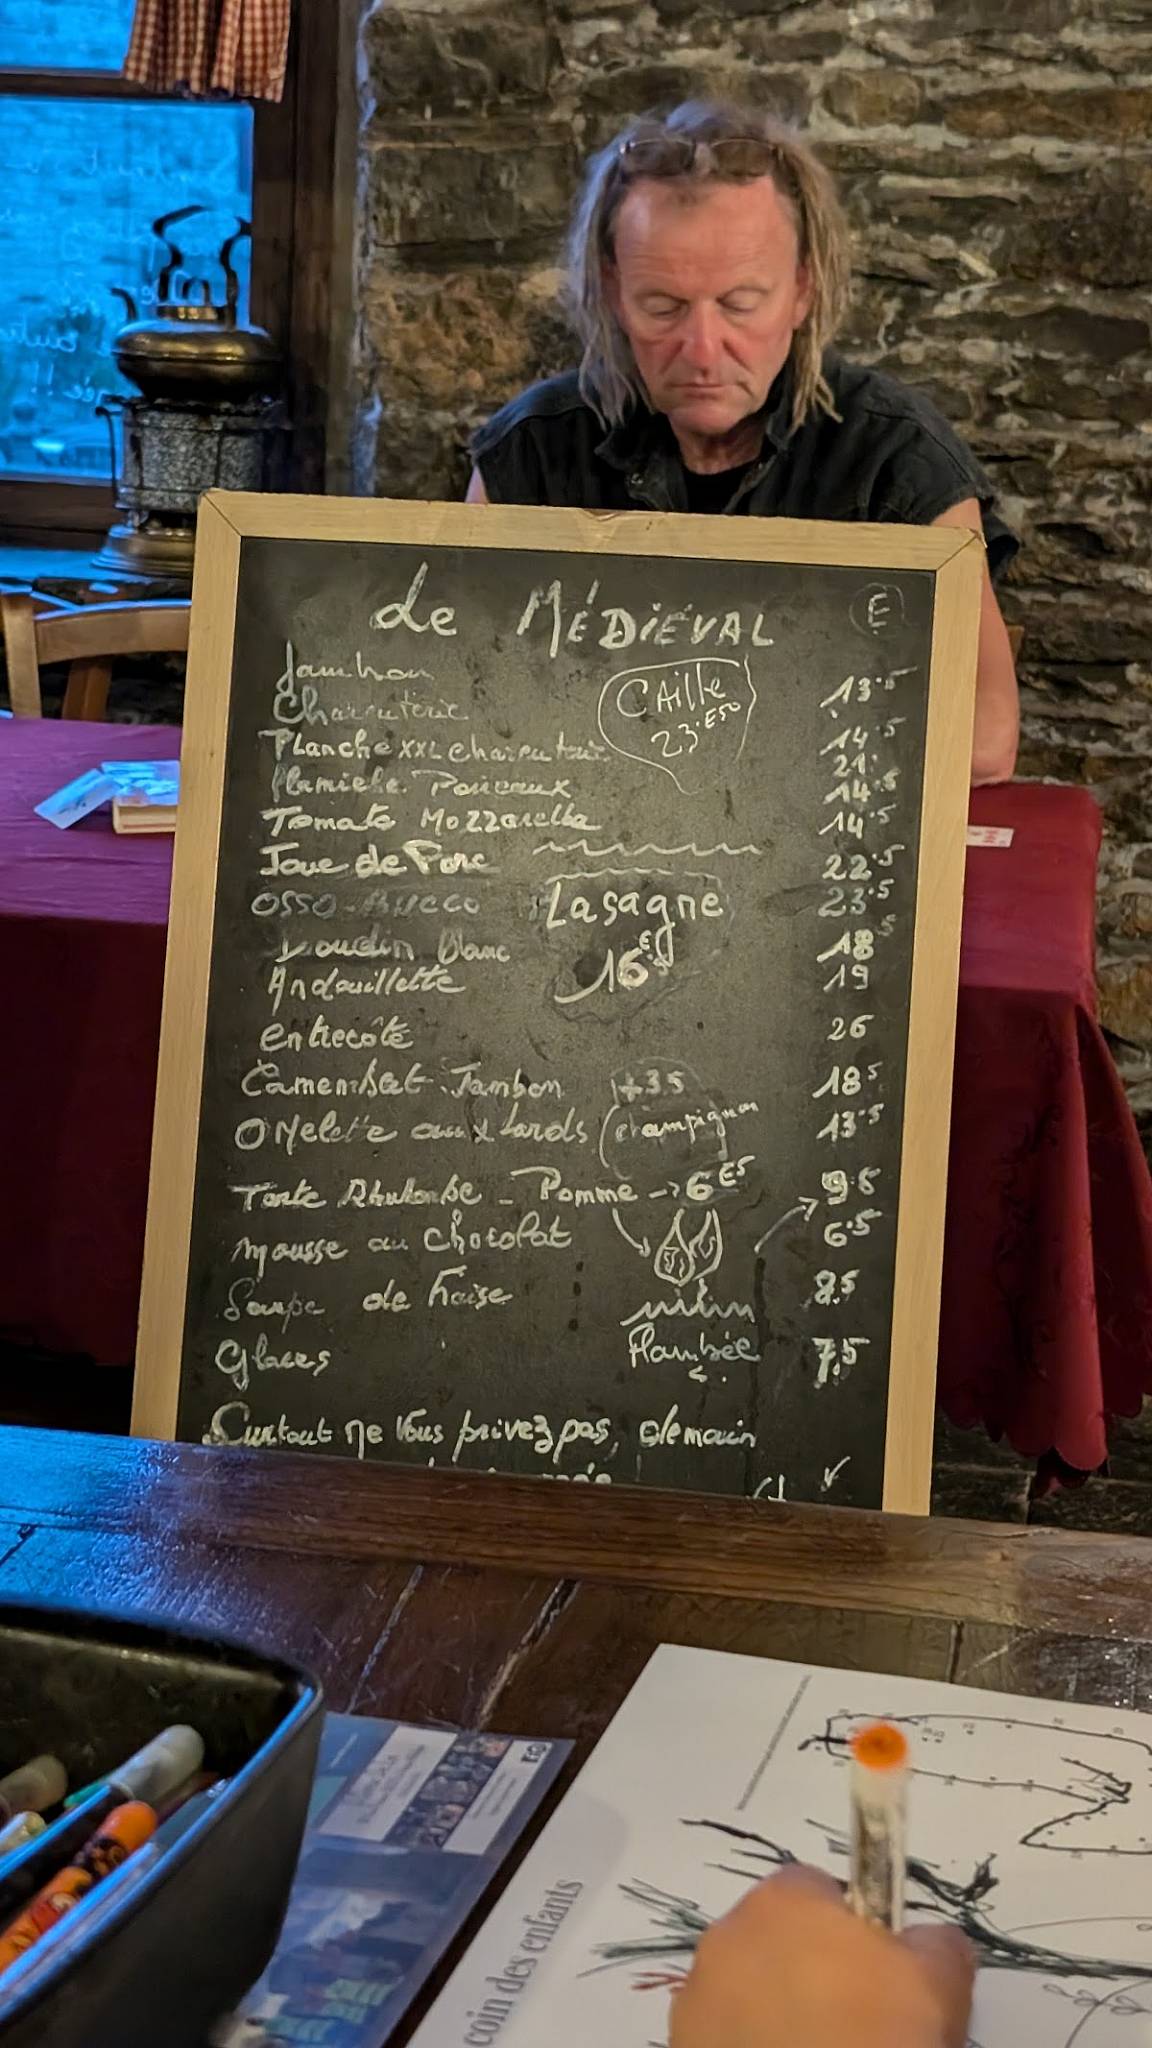 de MÉDIÉVAL E
Jambon 13.5
Charcuterie 14.5
CAille
23.E50
Planche XXL charcuterie 21.
Flamiche Poireaux 14.5
Tomate Mozzarella 14.5
Joue de Porc 22.5
OSSO-BUCCO 23.5
Lasagne
16 E
Boudin Blanc 18.5
Andouillette 19
entrecôte 26
Camembert-Jambon 18.5
+3.5
champignon
Omelette aux lards 13.5
Tarte Rhubarbe - Pomme -> 6 E5 9.5
mousse au chocolat 6.5
Soupe de fraise 8.5
Flambée
Glaces 7.5
Surtout ne vous privez pas, demain
coin des enfants